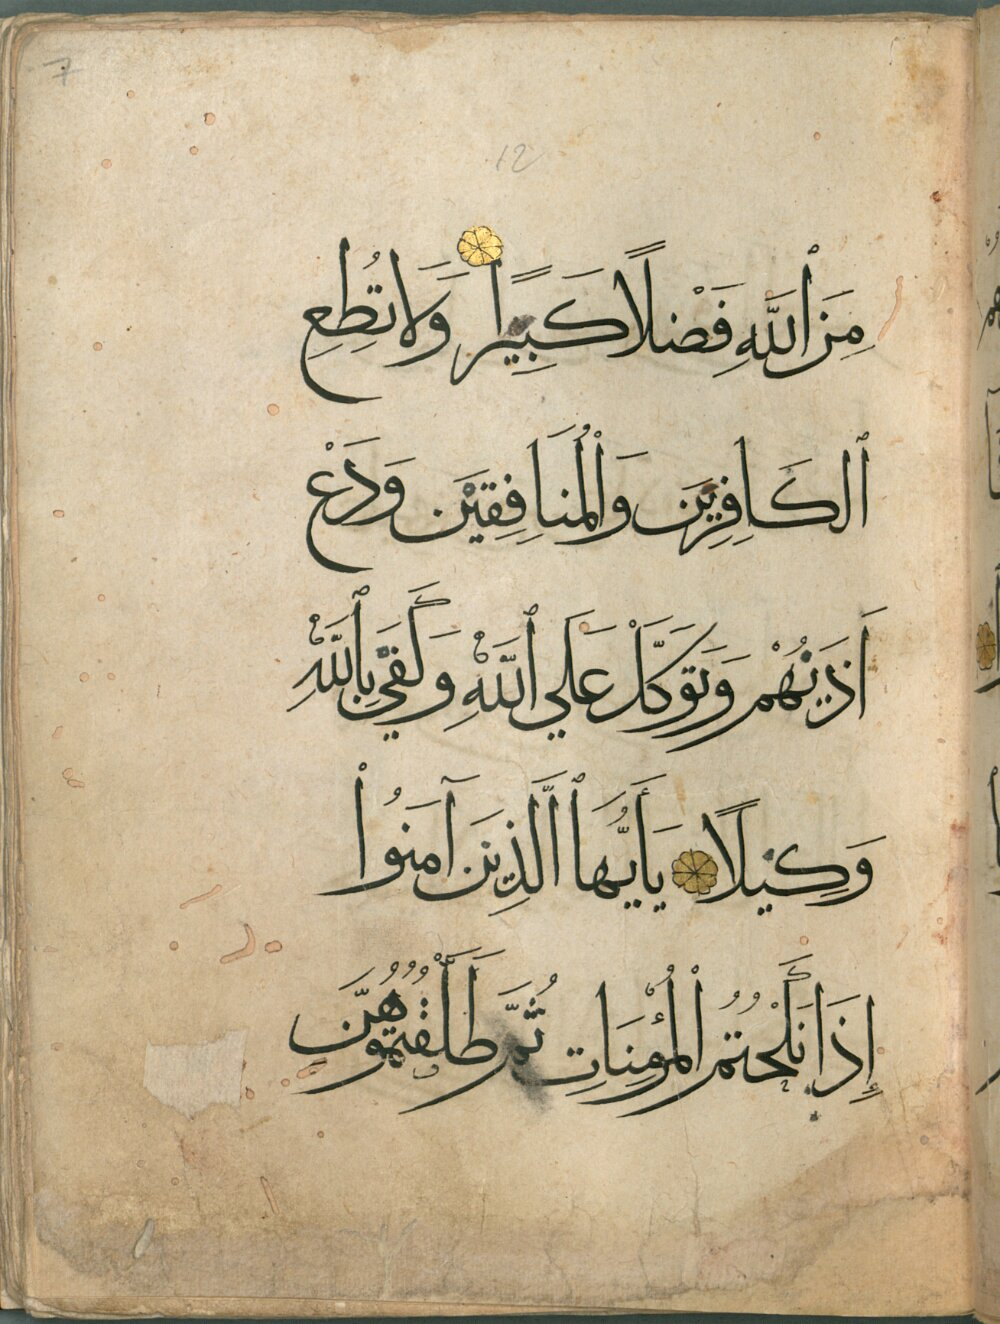 7
12
مِنَ ٱللَّهِ فَضْلًا كَبِيرًا وَلَا تُطِعِ
ٱلكَافِرِينَ وَٱلْمُنَافِقِينَ وَدَعْ
أَذَىٰهُمْ وَتَوَكَّلْ عَلَي ٱللَّهِ وَكَفَي بِٱللَّهِ
وَكِيلًا يَأَيُّهَا ٱلَّذِينَ آمَنُواْ
إِذَا نَكَحْتُمُ ٱلْمُؤْمِنَاتِ ثُمَّ طَلَّقْتُمُوهُنَّ